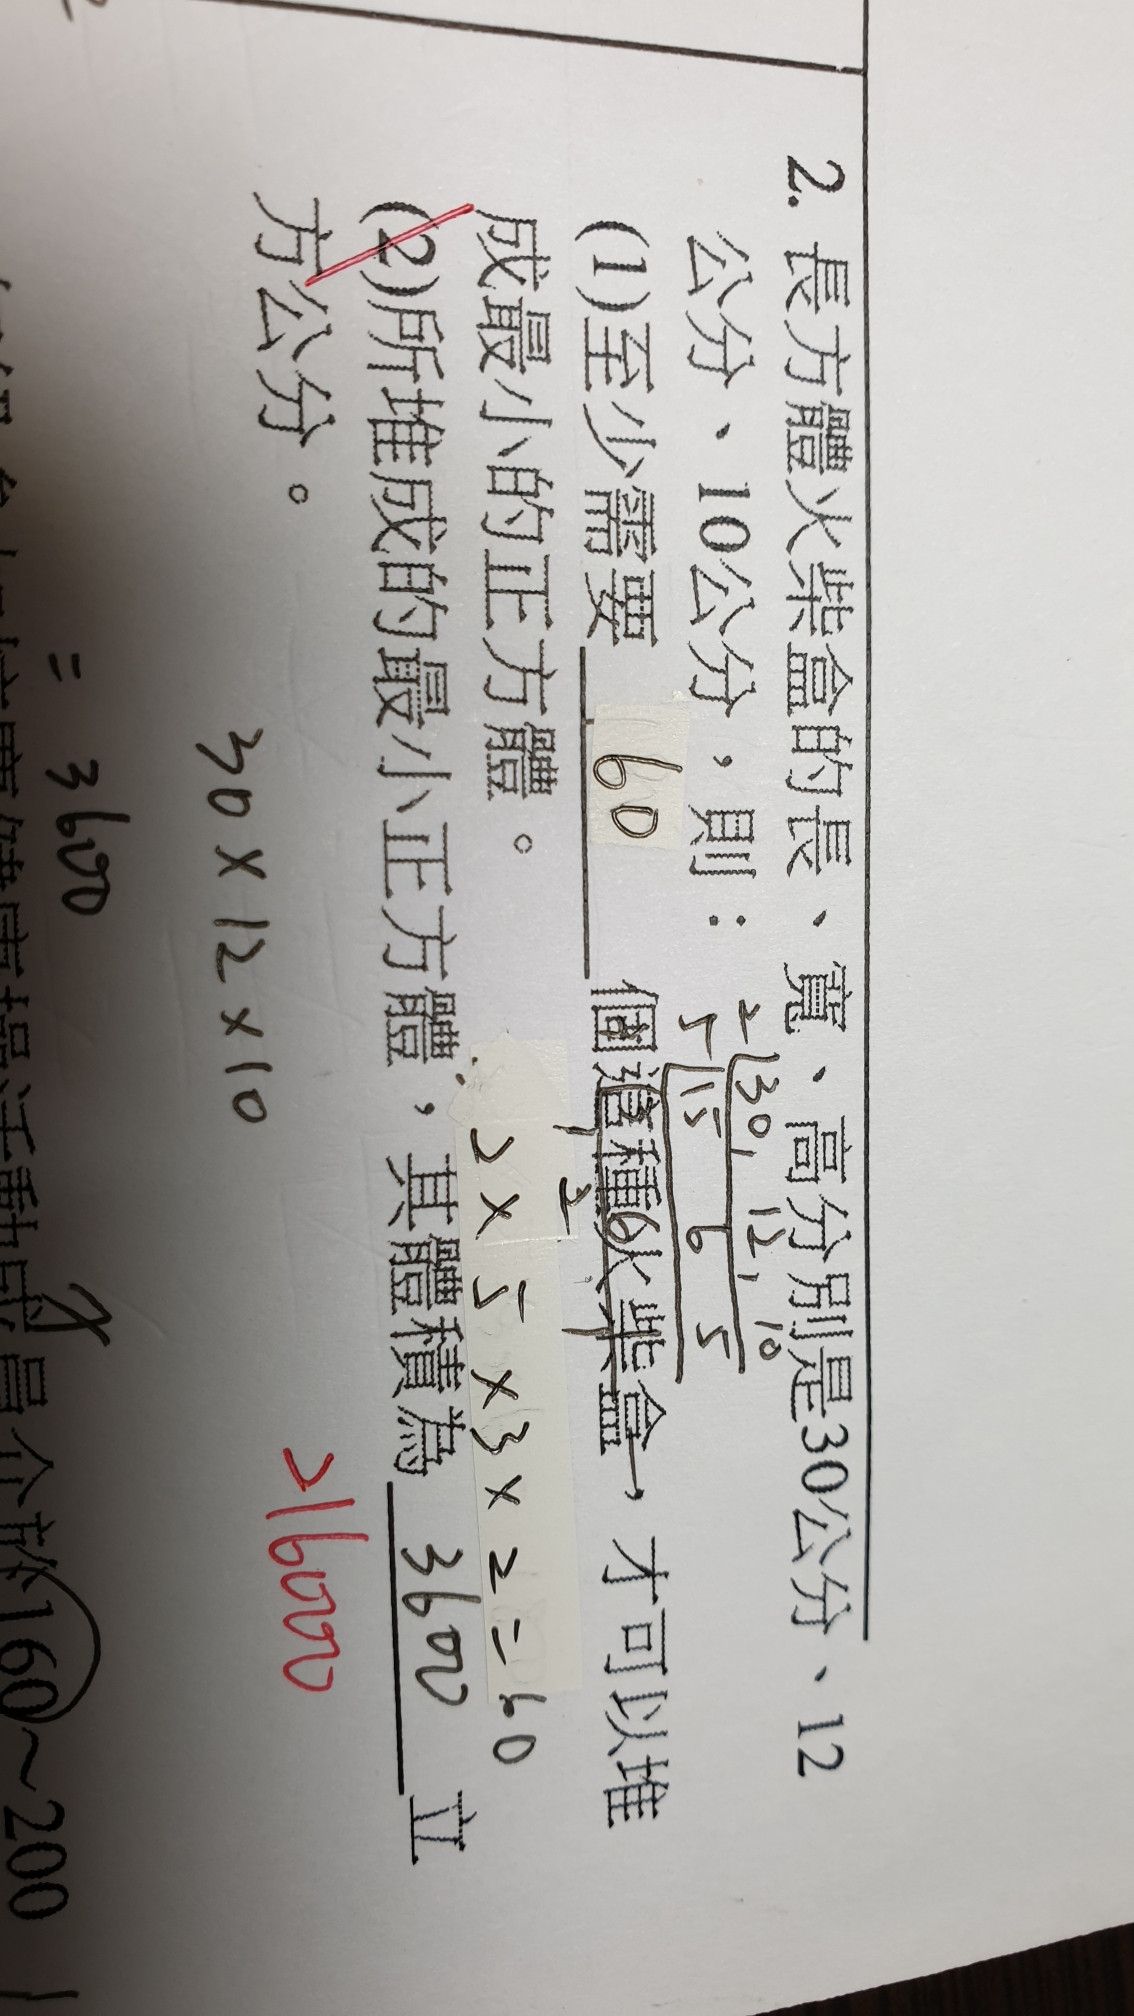 2. 長方體火柴盒的長、寬、高分別是30公分、12
公分、10公分，則：
2 30, 12, 10
5 15 6 5
(1)至少需要 60 個這種火柴盒，才可以堆
6
2
成最小的正方體。
2×5×3×2=60
(2)所堆成的最小正方體，其體積為 3600 立
方公分。
216000
30×12×10
= 3600
160～200